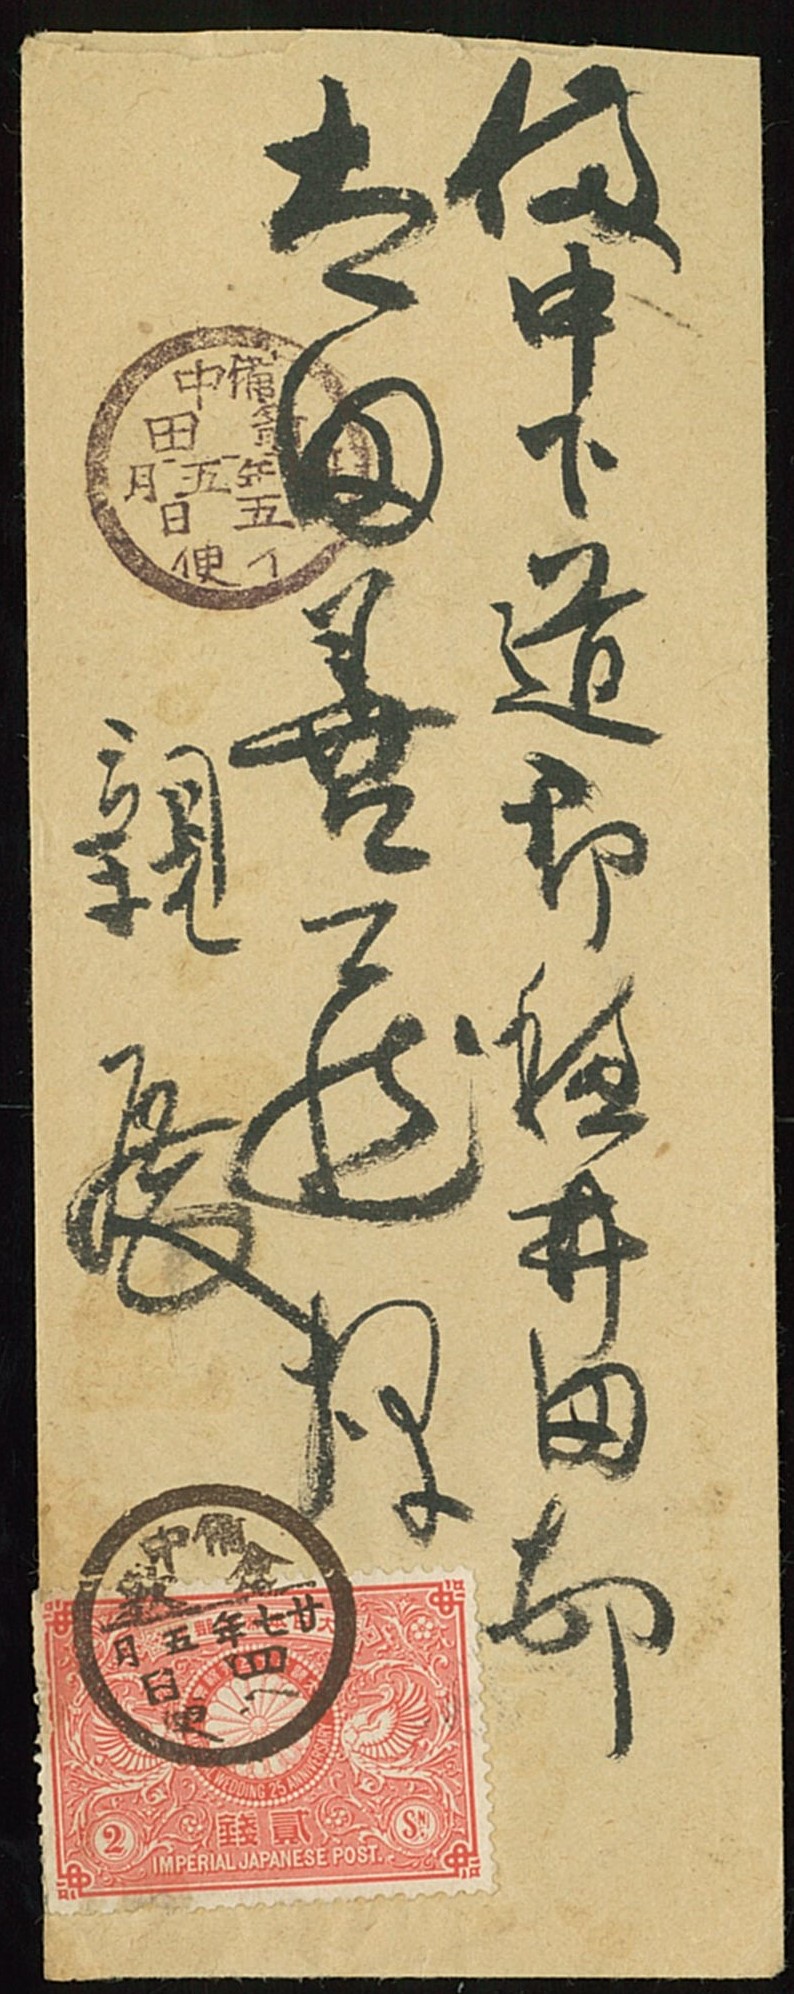 備中下道郡穂井田邨
太田善
様
親展
備中
田
年五月五日
イ便
備中
廿七年五月四日
便
WEDDING 25 ANNIVERSARY
貳錢
2
SN
IMPERIAL JAPANESE POST.